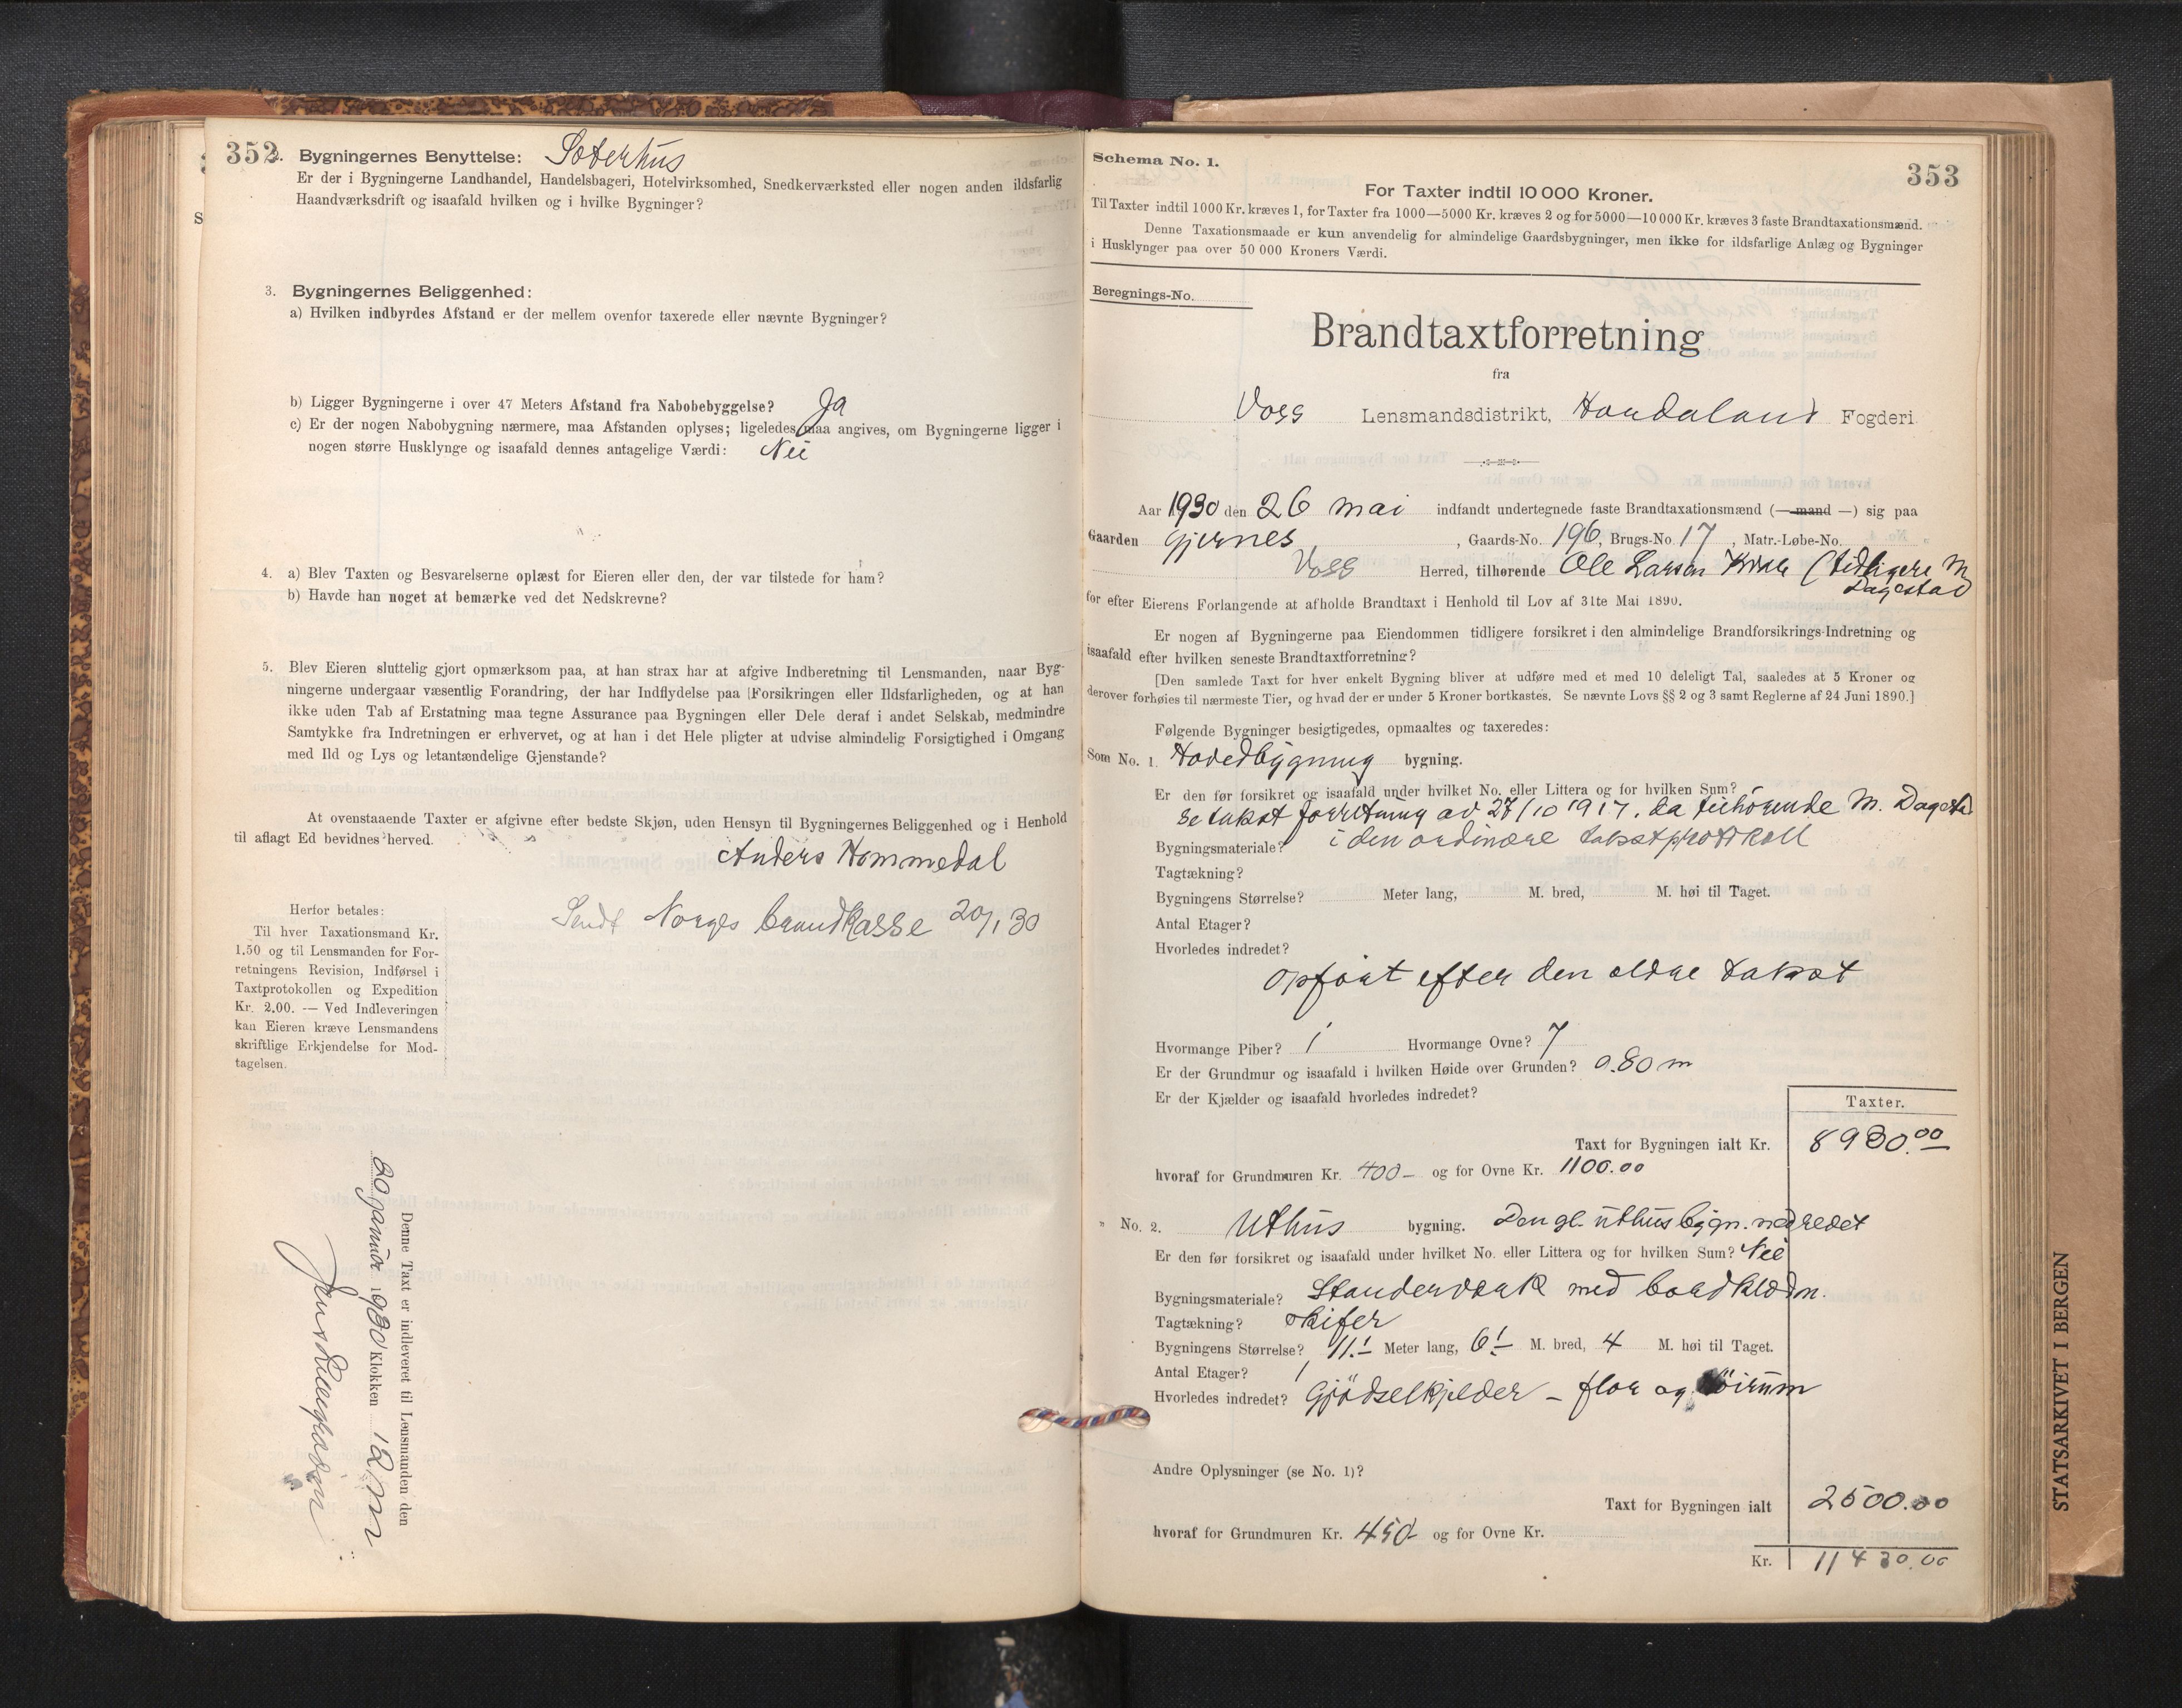 352
2. Bygningernes Benyttelse: Sæterhus
Er der i Bygningerne Landhandel, Handelsbageri, Hotelvirksomhed, Snedkerværksted eller nogen anden ildsfarlig
Haandværksdrift og isaafald hvilken og i hvilke Bygninger?
3. Bygningernes Beliggenhed:
a) Hvilken indbyrdes Afstand er der mellem ovenfor taxerede eller nævnte Bygninger?
b) Ligger Bygningerne i over 47 Meters Afstand fra Nabobebyggelse? Ja
c) Er der nogen Nabobygning nærmere, maa Afstanden oplyses; ligeledes maa angives, om Bygningerne ligger i
nogen større Husklynge og isaafald dennes antagelige Værdi: Nei
4. a) Blev Taxten og Besvarelserne oplæst for Eieren eller den, der var tilstede for ham?
b) Havde han noget at bemærke ved det Nedskrevne?
5. Blev Eieren sluttelig gjort opmærksom paa, at han strax har at afgive Indberetning til Lensmanden, naar Byg-
ningerne undergaar væsentlig Forandring, der har Indflydelse paa Forsikringen eller Ildsfarligheden, og at han
ikke uden Tab af Erstatning maa tegne Assurance paa Bygningen eller Dele deraf i andet Selskab, medmindre
Samtykke fra Indretningen er erhvervet, og at han i det Hele pligter at udvise almindelig Forsigtighed i Omgang
med Ild og Lys og letantændelige Gjenstande?
At ovenstaaende Taxter er afgivne efter bedste Skjøn, uden Hensyn til Bygningernes Beliggenhed og i Henhold
til aflagt Ed bevidnes herved.
Anders Hommedal
Sendt Norges brandkasse 20/1 30
Herfor betales:
Til hver Taxationsmand Kr.
1.50 og til Lensmanden for For-
retningens Revision, Indførsel i
Taxtprotokollen og Expedition
Kr. 2.00. — Ved Indleveringen
kan Eieren kræve Lensmandens
skriftlige Erkjendelse for Mod-
tagelsen.
Denne Taxt er indleveret til Lensmanden den
20 januar 1930 Klokken 12 m
Schema No. 1.
353
For Taxter indtil 10 000 Kroner.
Til Taxter indtil 1000 Kr. kræves 1, for Taxter fra 1000—5000 Kr. kræves 2 og for 5000—10 000 Kr. kræves 3 faste Brandtaxationsmænd.
Denne Taxationsmaade er kun anvendelig for almindelige Gaardsbygninger, men ikke for ildsfarlige Anlæg og Bygninger
i Husklynger paa over 50 000 Kroners Værdi.
Beregnings-No.
Brandtaxtforretning
fra
Voss Lensmandsdistrikt, Hordaland Fogderi
Aar 1930 den 26 mai indfandt undertegnede faste Brandtaxationsmænd (— mand —) sig paa
Gaarden Gjernes, Gaards-No. 196, Brugs-No. 17, Matr.-Løbe-No.
Voss Herred, tilhørende Ole Larsen (tidligere M
Dagestad
for efter Eierens Forlangende at afholde Brandtaxt i Henhold til Lov af 31te Mai 1890.
Er nogen af Bygningerne paa Eiendommen tidligere forsikret i den almindelige Brandforsikrings-Indretning og
isaafald efter hvilken seneste Brandtaxtforretning?
[Den samlede Taxt for hver enkelt Bygning bliver at udføre med et med 10 deleligt Tal, saaledes at 5 Kroner og
derover forhøies til nærmeste Tier, og hvad der er under 5 Kroner bortkastes. Se nævnte Lovs §§ 2 og 3 samt Reglerne af 24 Juni 1890.]
Følgende Bygninger besigtigedes, opmaaltes og taxeredes:
Som No. 1. Hovedbygning bygning.
Er den før forsikret og isaafald under hvilket No. eller Littera og for hvilken Sum?
Se takst forretning av 27/10 1917. da tilhørende M. Dagestad
Bygningsmateriale? i den ordinære takstprotokoll
Tagtækning?
Bygningens Størrelse? Meter lang, M. bred, M. høi til Taget.
Antal Etager?
Hvorledes indredet?
Opført efter den ældre takst
Hvormange Piber? 1 Hvormange Ovne? 7
Er der Grundmur og isaafald i hvilken Høide over Grunden? 0.80 m
Er der Kjælder og isaafald hvorledes indredet?
Taxter.
Taxt for Bygningen ialt Kr. 8930.00
hvoraf for Grundmuren Kr. 400- og for Ovne Kr. 1100.00
" No. 2. Uthus bygning. Den gl. uthusbygn. nedredet
Er den før forsikret og isaafald under hvilket No. eller Littera og for hvilken Sum? Nei
Bygningsmateriale? Standerverk med bordklædn.
Tagtækning? skifer
Bygningens Størrelse? 11.- Meter lang, 6.- M. bred, 4 M. høi til Taget.
Antal Etager? 1
Hvorledes indredet? Gjødselkjelder - flor og høirum
Andre Oplysninger (se No. 1)?
Taxt for Bygningen ialt 2500.00
hvoraf for Grundmuren Kr. 450- og for Ovne Kr.
Kr. 11430.00
STATSARKIVET I BERGEN